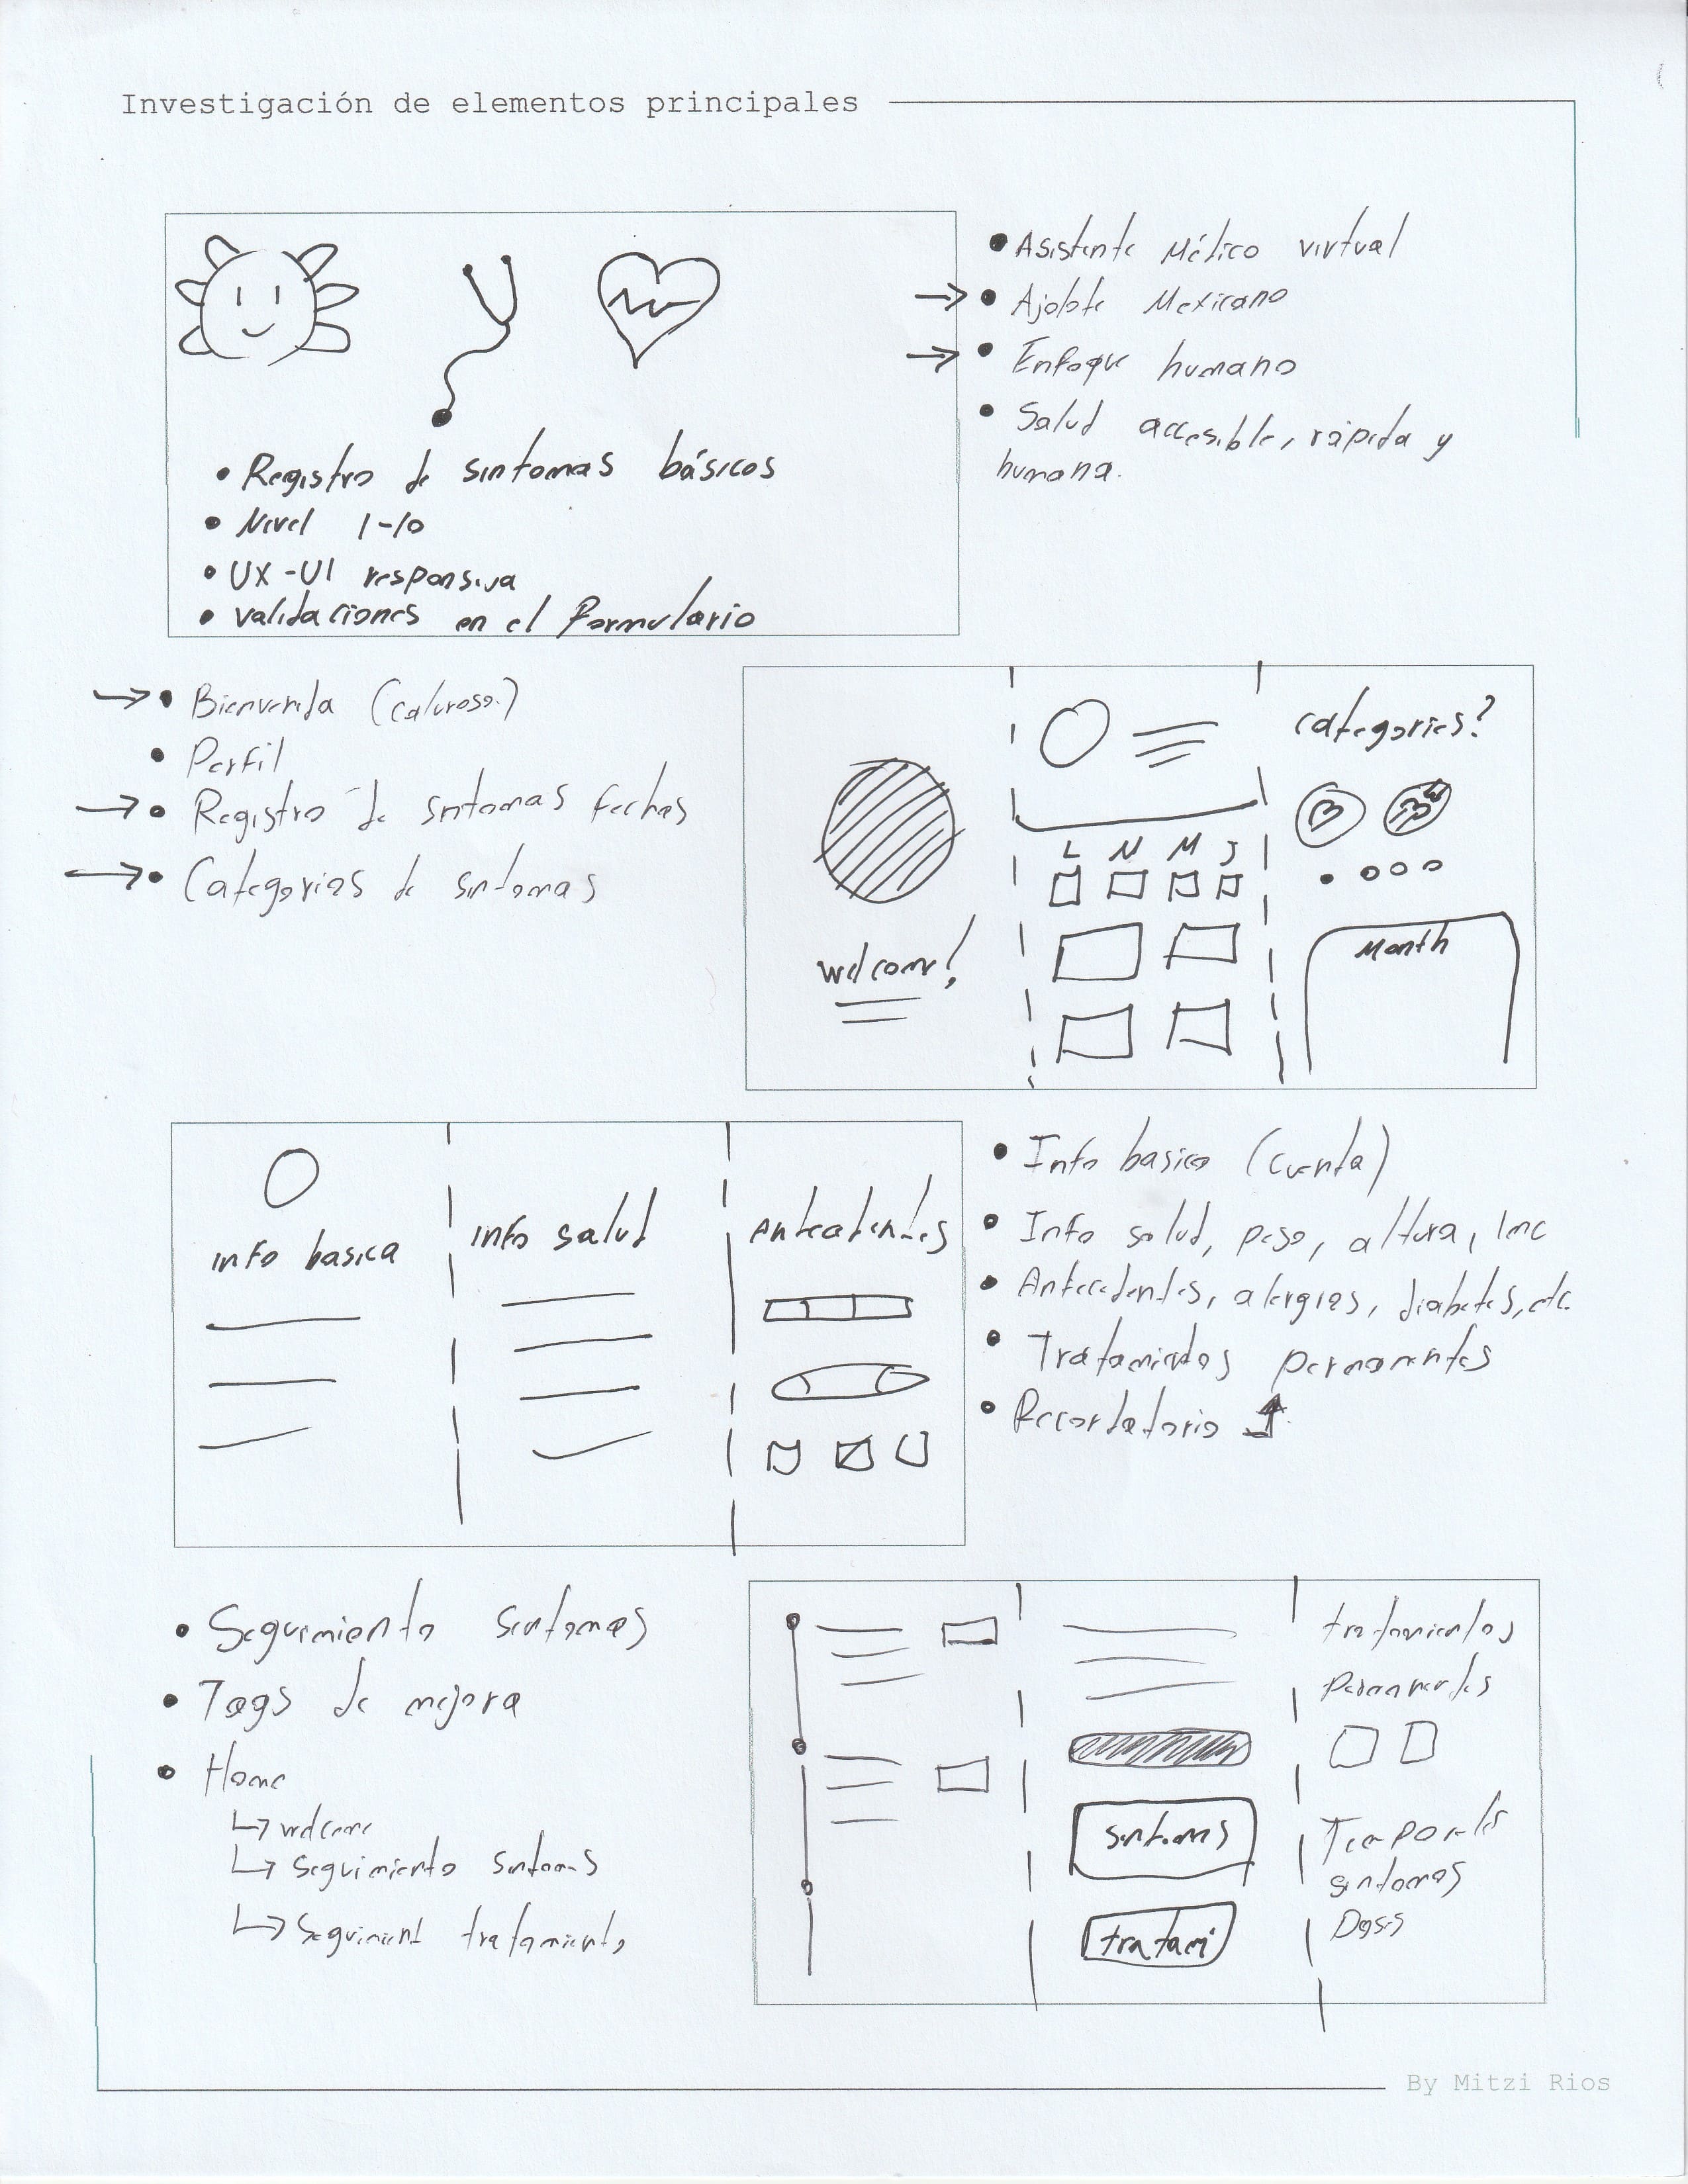 Investigación de elementos principales
• Registro de sintomas básicos
• Nivel 1-10
• UX-UI responsiva
• validaciones en el formulario
• Asistente Médico virtual
→ • Ajolote Mexicano
→ • Enfoque humano
• Salud accesible, rápida y
humana.
→ • Bienvenida (caluroso.)
• Perfil
→ • Registro de sintomas fechas
→ • Categorias de sintomas
welcome!
L M M J
categories?
Month
info basica
info salud
Antecedentes
• Info basica (cuenta)
• Info salud, peso, altura, Imc
• Antecedentes, alergias, diabetes, etc.
• Tratamientos permanentes
• Recordatorio ↑
• Seguimiento sintomas
• Tags de mejora
• Home
↳ welcome
↳ Seguimiento sintomas
↳ Seguimient tratamiento
sintomas
tratami
tratamientos
permanentes
Temporales
sintomas
Dosis
By Mitzi Rios